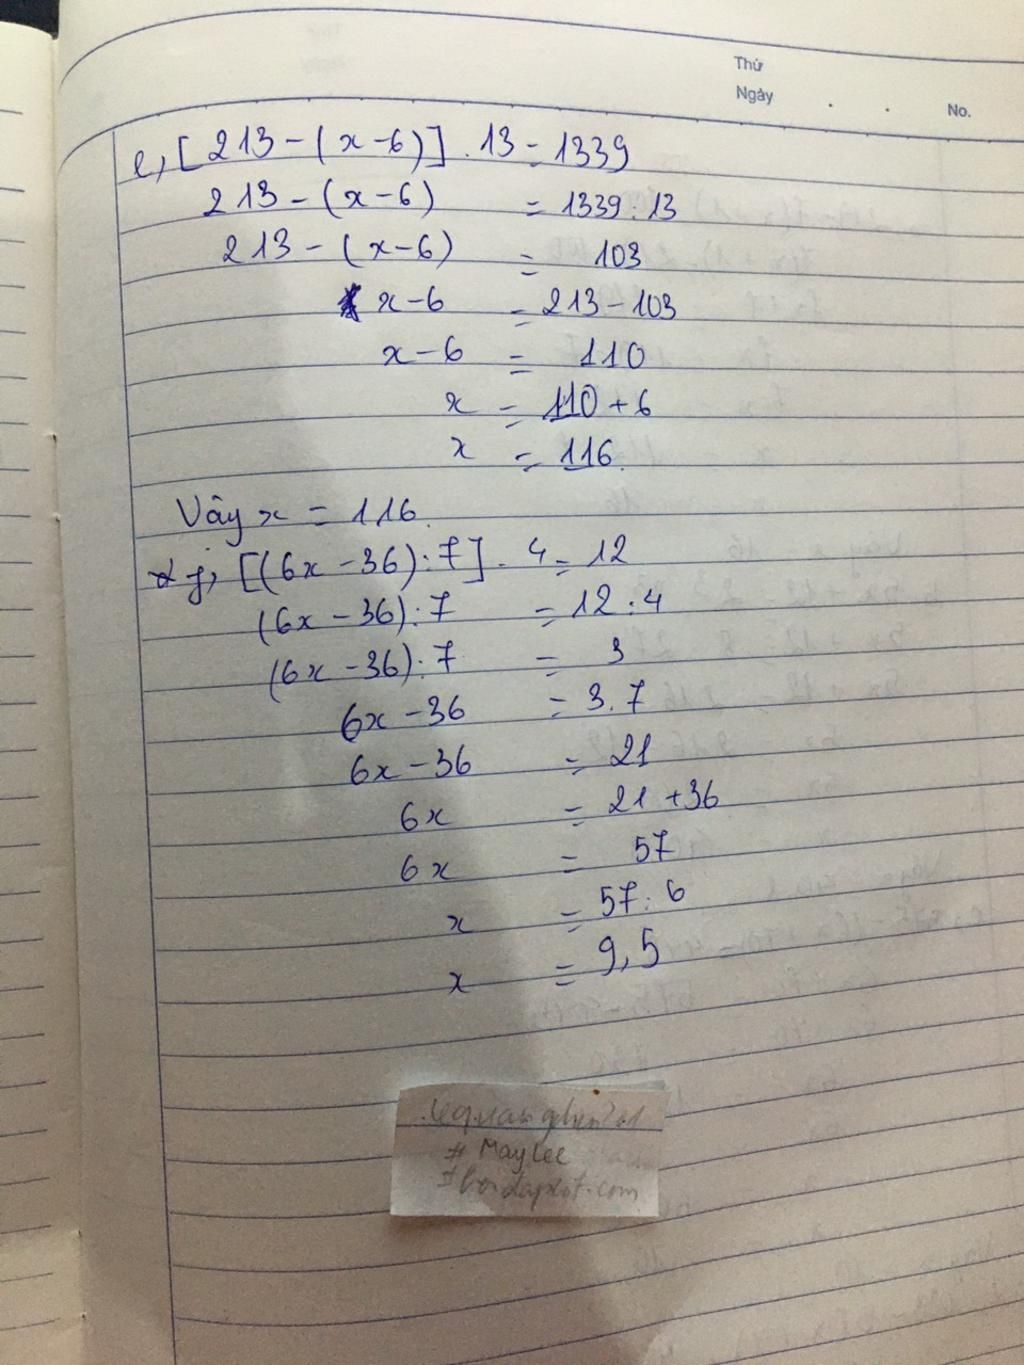 Thứ
Ngày . . No.
e, [213 - (x - 6)] . 13 = 1339
213 - (x - 6) = 1339 : 13
213 - (x - 6) = 103
x - 6 = 213 - 103
x - 6 = 110
x = 110 + 6
x = 116.
Vây x = 116.
g, [(6x - 36) : 7] . 4 = 12
(6x - 36) : 7 = 12 : 4
(6x - 36) : 7 = 3
6x - 36 = 3.7
6x - 36 = 21
6x = 21 + 36
6x = 57
x = 57 : 6
x = 9,5
# MayLee